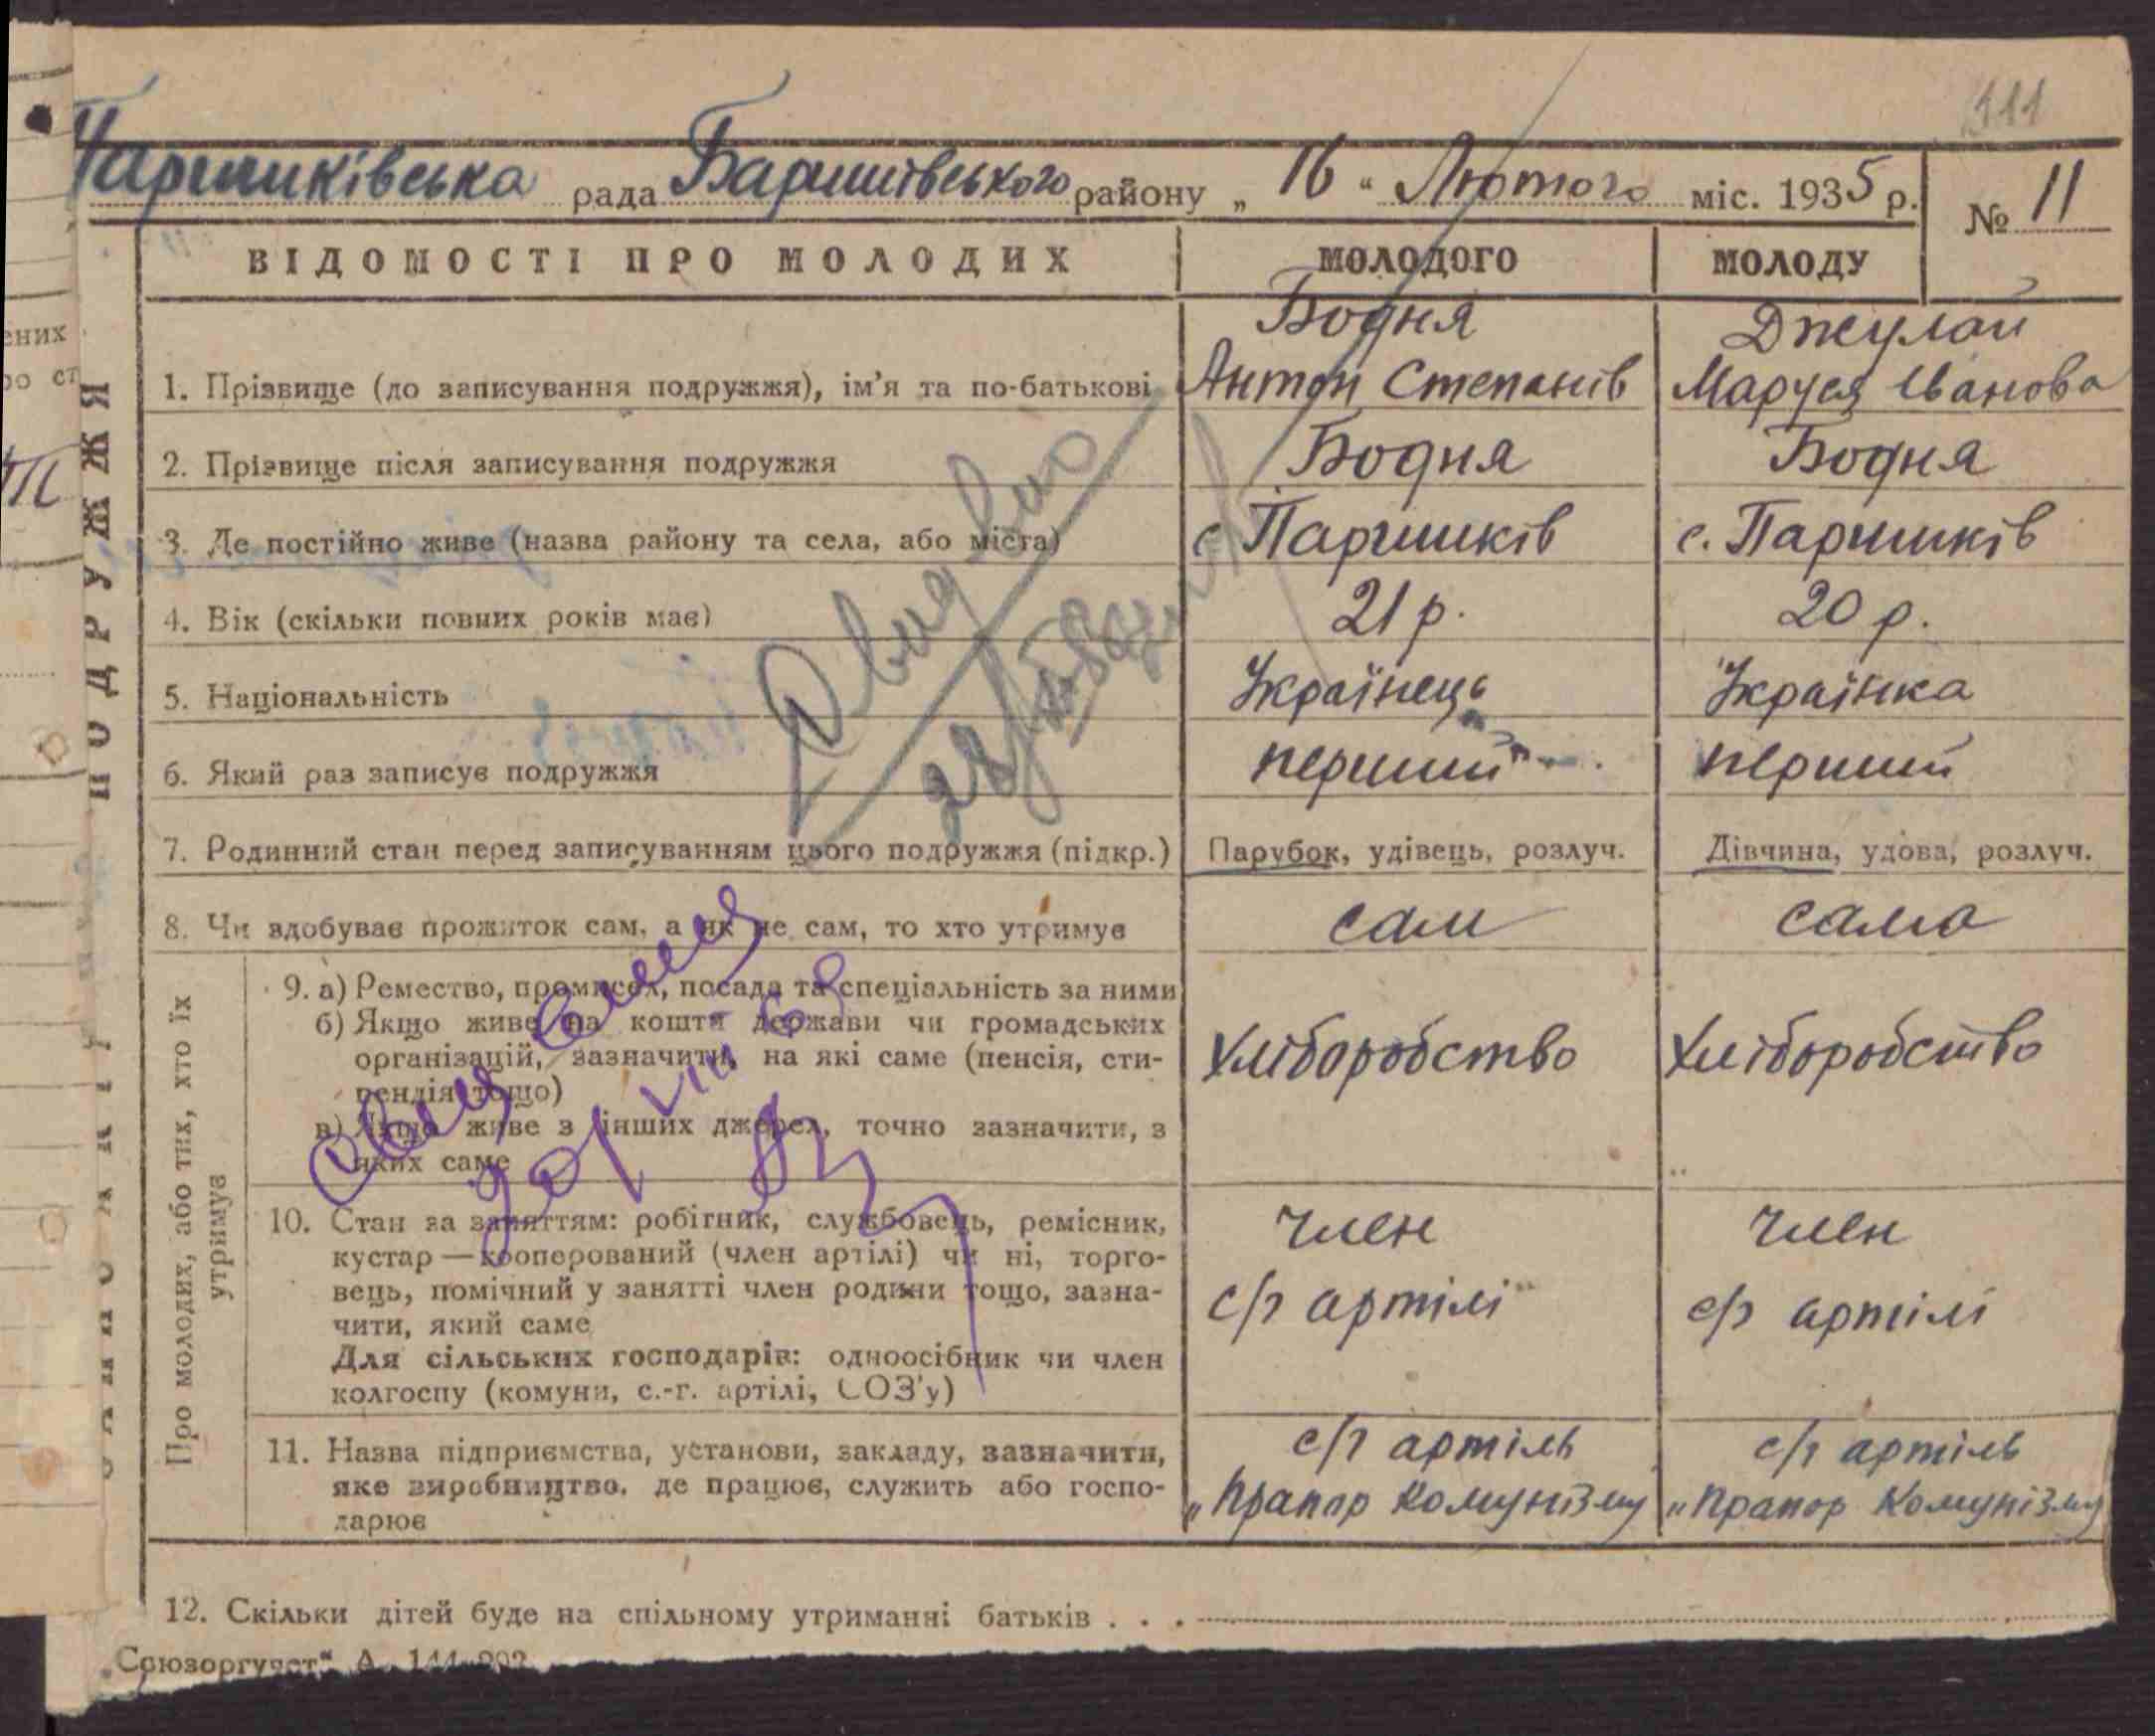 111
Паришківська рада Баришівського району „ 16 “ Лютого міс. 1935 р.
№ 11
ВІДОМОСТІ ПРО МОЛОДИХ
МОЛОДОГО
МОЛОДУ
ПОДРУЖЖЯ
1. Прізвище (до записування подружжя), ім’я та по-батькові
Бодня
Антон Степанів
Джулай
Маруся Іванова
2. Прізвище після записування подружжя
Бодня
Бодня
3. Де постійно живе (назва району та села, або міста)
с Паришків
с. Паришків
4. Вік (скільки повних років має)
21 р.
20 р.
5. Національність
Українець
Українка
6. Який раз записує подружжя
перший
перший
7. Родинний стан перед записуванням цього подружжя (підкр.)
Парубок, удівець, розлуч.
Дівчина, удова, розлуч.
8. Чи здобуває прожиток сам, а як не сам, то хто утримує
сам
сама
Про молодих, або тих, хто їх
утримує
9. а) Ремество, промисел, посада та спеціальність за ними
б) Якщо живе на кошти держави чи громадських
організацій, зазначити, на які саме (пенсія, сти-
пендія тощо)
в) Якщо живе з інших джерел, точно зазначити, з
яких саме
Хліборобство
Хліборобство
10. Стан за заняттям: робітник, службовець, ремісник,
кустар — кооперований (член артілі) чи ні, торго-
вець, помічний у занятті член родини тощо, зазна-
чити, який саме
Для сільських господарів: одноосібник чи член
колгоспу (комуни, с.-г. артілі, СОЗ’у)
член
с/г артілі
член
с/г артілі
11. Назва підприємства, установи, закладу, зазначити,
яке виробництво, де працює, служить або госпо-
дарює
с/г артіль
„Прапор Комунізму
с/г артіль
„Прапор Комунізму
12. Скільки дітей буде на спільному утриманні батьків . . .
„Союзоргучет“ А